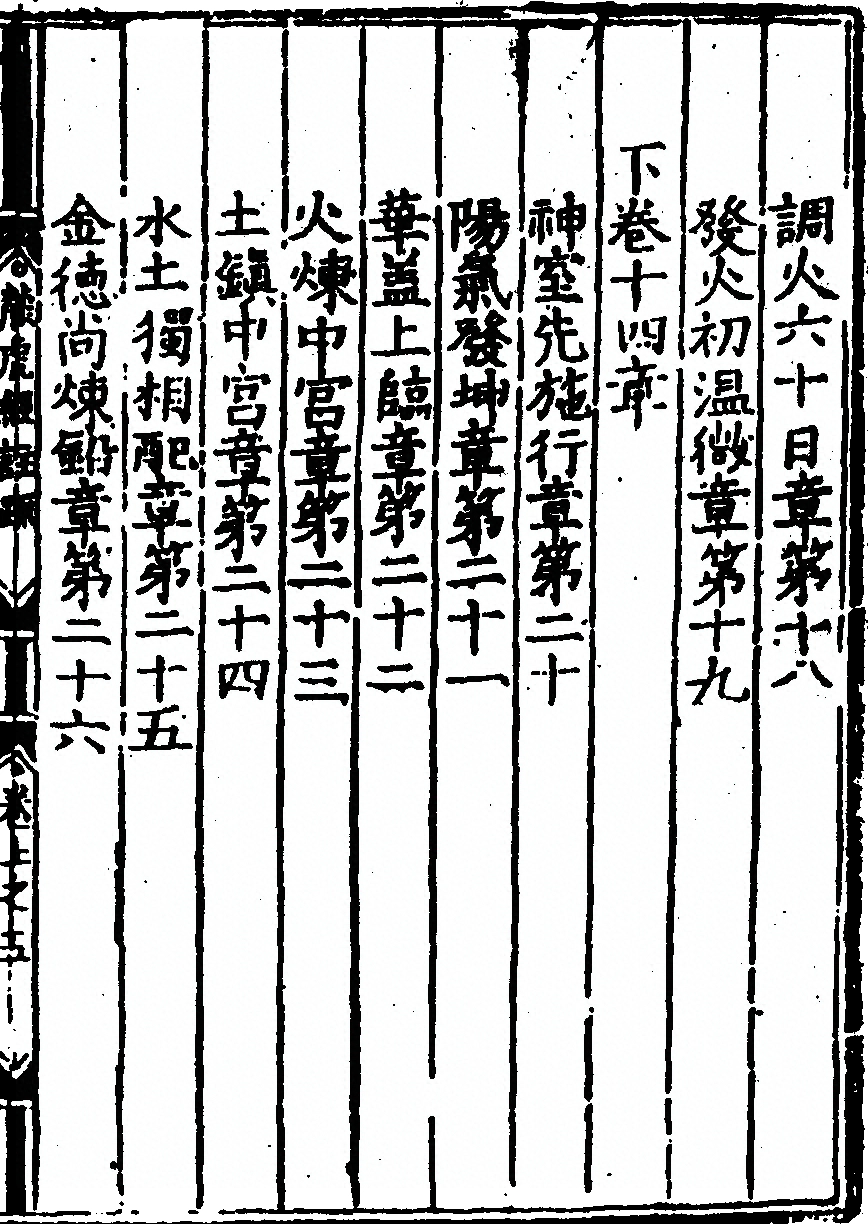 調火六十日章第十八
發火初温微章第十九
下卷十四章
神室先施行章第二十
陽氣發坤章第二十一
華盖上臨章第二十二
火煉中宮章第二十三
土鎮中宮章第二十四
水土獨相配章第二十五
金徳尚煉鉛章第二十六
龍虎經註疏
卷上之五